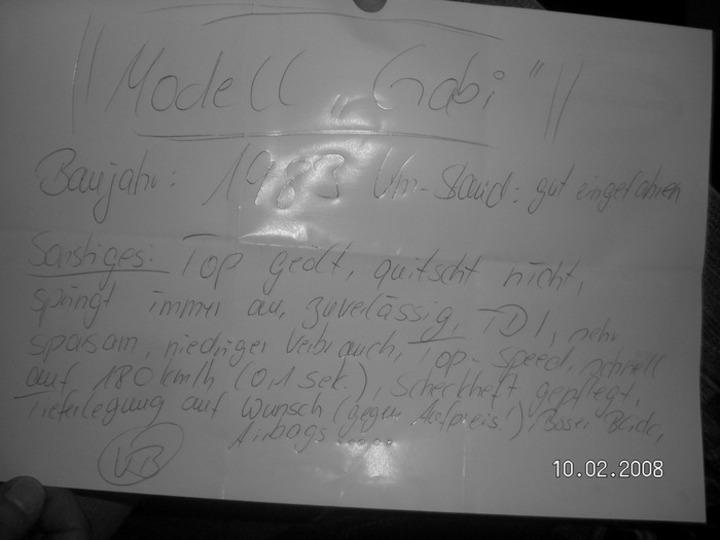 Modell „Gabi“
Baujahr: 1983 Km-Stand: gut eingefahren
Sonstiges: Top geölt, quitscht nicht,
springt immer an, zuverlässig, TDI, sehr
sparsam, niedriger Verbrauch, Top-Speed, schnell
auf 180 km/h (0,1 sek.), Scheckheft gepflegt,
Tieferlegung auf Wunsch (gegen Aufpreis!), Böser Blick,
Airbags.....
VB
10.02.2008